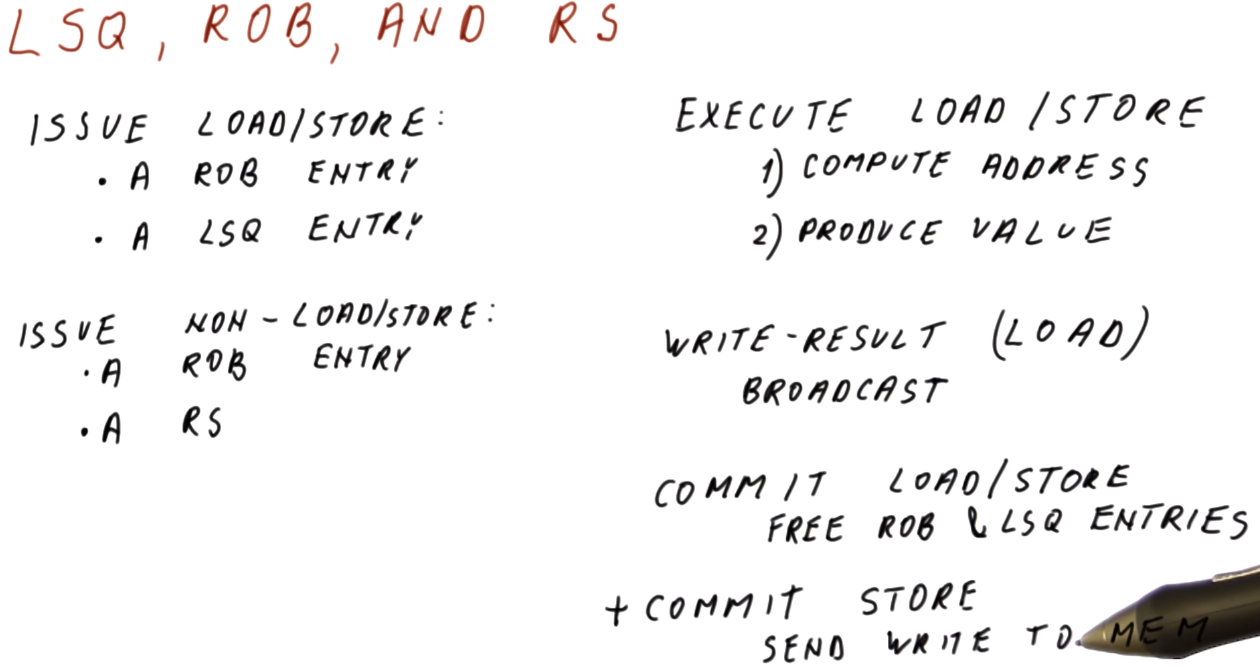 LSQ, ROB, AND RS
ISSUE LOAD/STORE:
· A ROB ENTRY
· A LSQ ENTRY
ISSUE NON-LOAD/STORE:
· A ROB ENTRY
· A RS
EXECUTE LOAD/STORE
1) COMPUTE ADDRESS
2) PRODUCE VALUE
WRITE-RESULT (LOAD)
BROADCAST
COMMIT LOAD/STORE
FREE ROB & LSQ ENTRIES
+ COMMIT STORE
SEND WRITE TO MEM